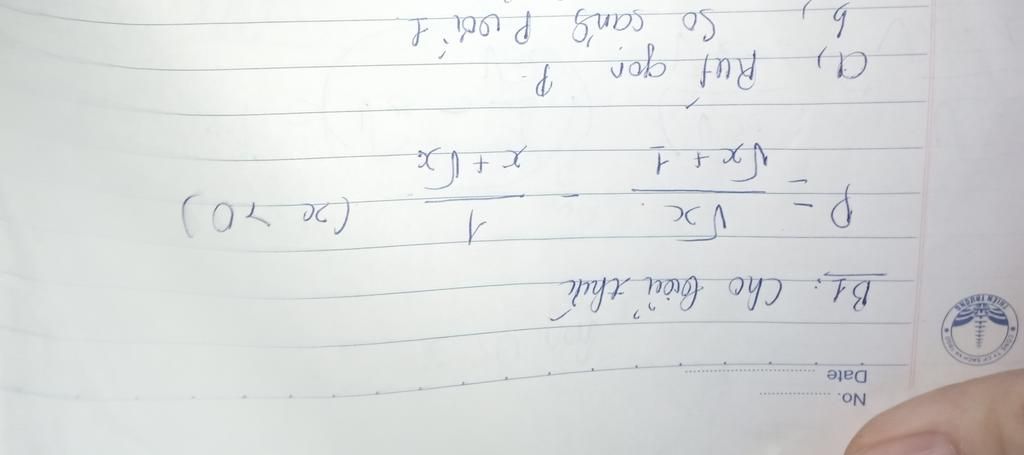 No.
Date
B1: Cho biểu thức
P = \frac{\sqrt{x}}{\sqrt{x} + 1} - \frac{1}{x + \sqrt{x}} (x > 0)
a, Rút gọn P
b, So sánh P với 1
THIÊN TRƯỜNG